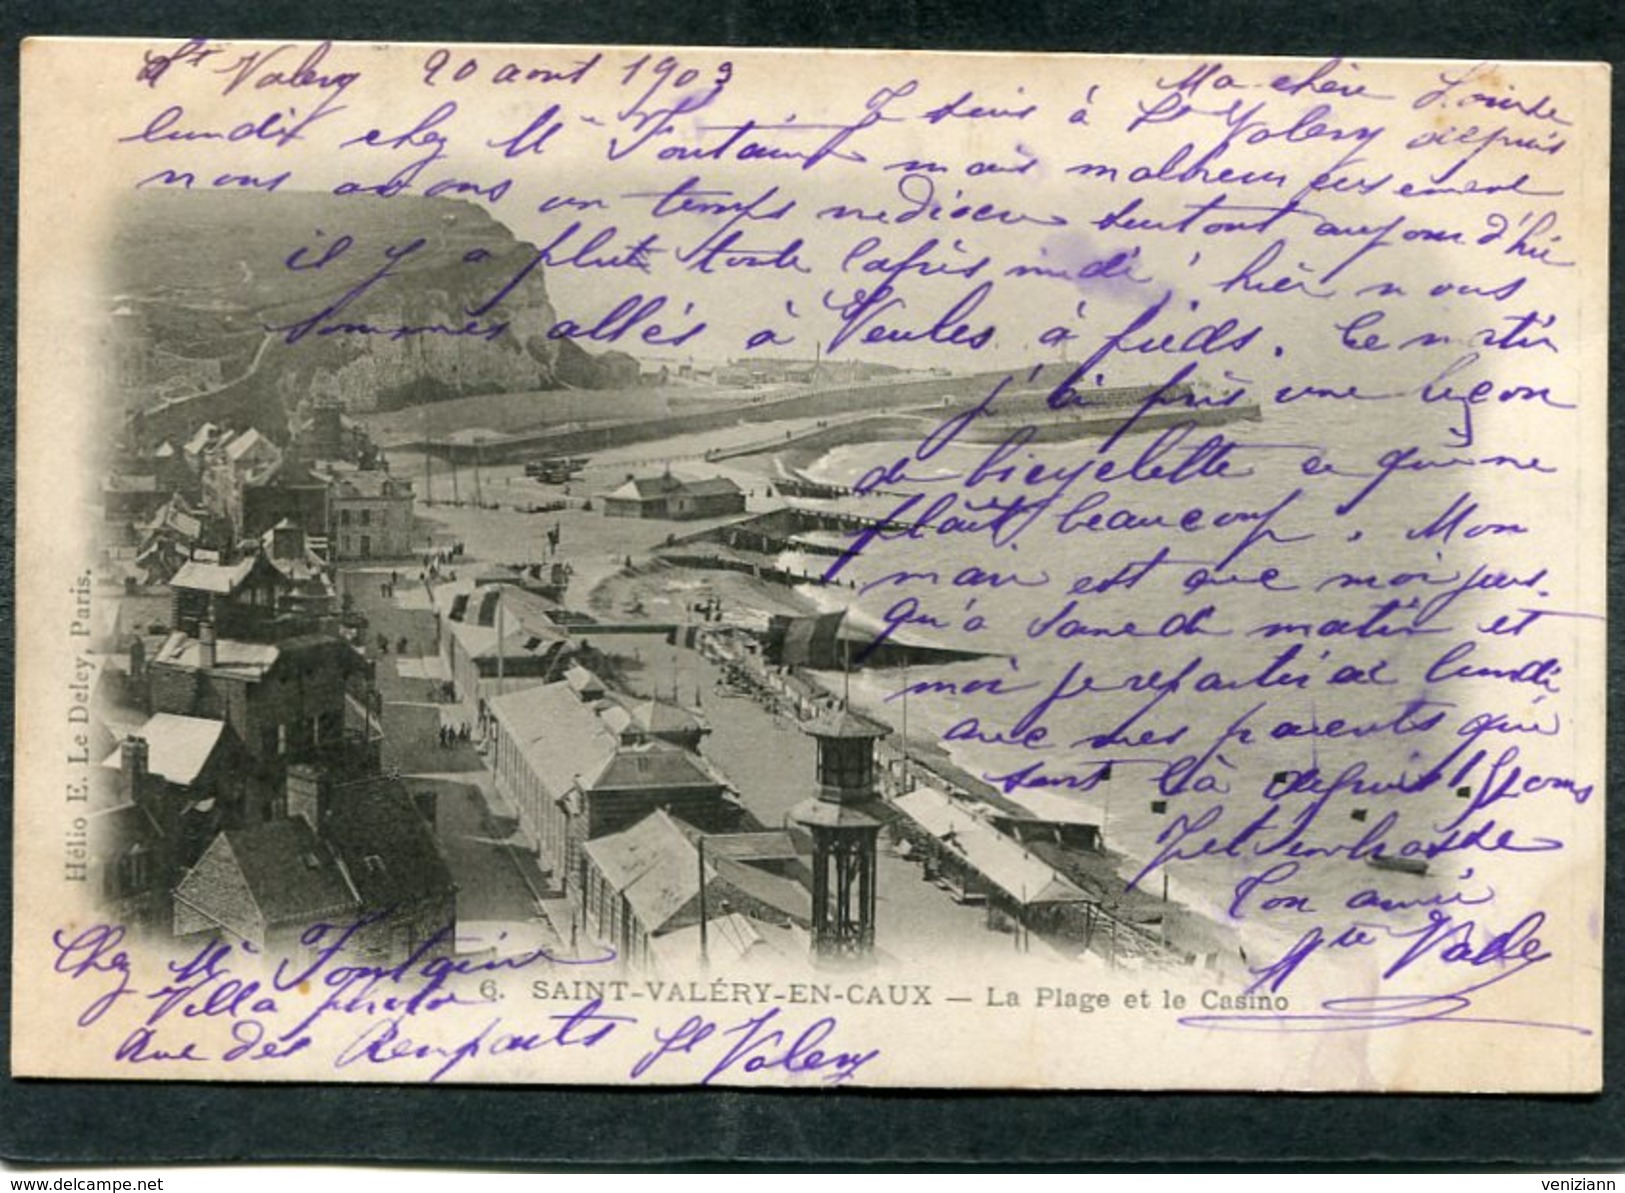 St Valery 20 aout 1903
Ma chère Louise
Je suis à St Valery depuis
lundi chez Me Fontaine mais malheureusement
nous avons un temps surtout aujourd'hui
il y a plut toute l'après midi, hièr nous
sommes allés à Veules à pieds. Ce matin
j'ai pris une leçon
de bicyclette ce qui me
plait beaucoup. Mon
mari est avec moi jus
qu'à Samedi matin et
moi je repartirai lundi
avec mes parents qui
sont là depuis
Je t'embrasse
Ton amie
Chez Me Fontaine
Villa
Rue des Remparts St Valery
6. SAINT-VALÉRY-EN-CAUX — La Plage et le Casino
Hélio E. Le Deley, Paris.
www.delcampe.net
veniziann